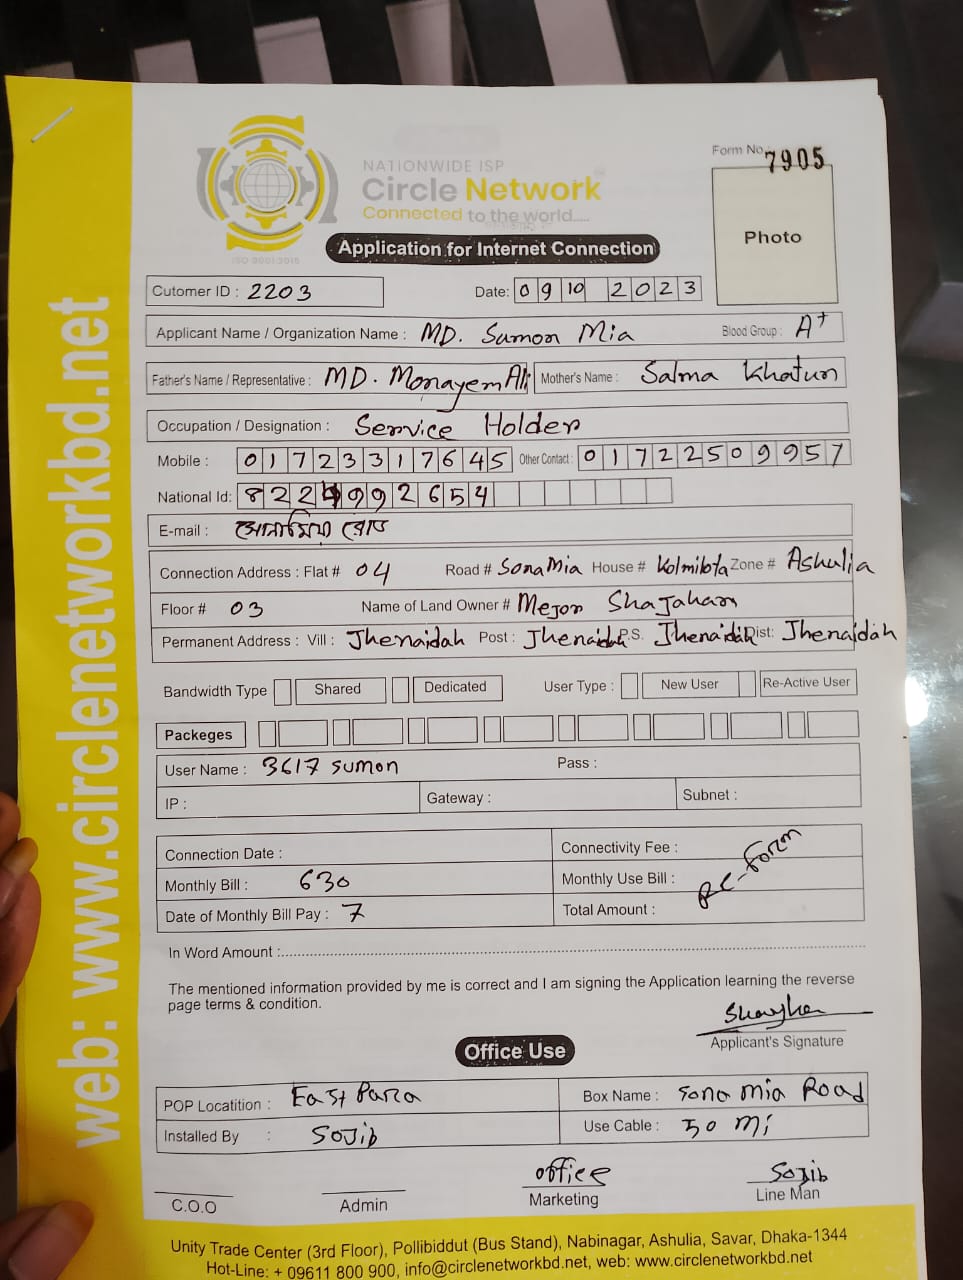 Form No. 7905
NATIONWIDE ISP
Circle Network
Connected to the world.....
ISO 9001:2015
Photo
Application for Internet Connection
Cutomer ID : 2203 Date: 09 10 2023
Applicant Name / Organization Name : MD. Sumon Mia Blood Group : A+
Father's Name / Representative : MD. Monayem Ali Mother's Name : Salma Khatun
Occupation / Designation : Service Holder
Mobile : 01723317645 Other Contact : 01722509957
National Id: 8224992654
E-mail : সোনামিয়া রোড
Connection Address : Flat # 04 Road # Sona Mia House # Kolmilota Zone # Ashulia
Floor # 03 Name of Land Owner # Mejor Shajahan
Permanent Address : Vill : Jhenaidah Post : Jhenaidah P.S. Jhenaidah Dist: Jhenaidah
Bandwidth Type Shared Dedicated User Type : New User Re-Active User
Packeges
User Name : 3617 sumon Pass :
IP : Gateway : Subnet :
Connection Date : Connectivity Fee :
Monthly Bill : 630 Monthly Use Bill :
Re-Form
Date of Monthly Bill Pay : 7 Total Amount :
In Word Amount :
The mentioned information provided by me is correct and I am signing the Application learning the reverse
page terms & condition.
Applicant's Signature
Office Use
POP Locatition : East Para Box Name : Sona mia Road
Installed By : Sojib Use Cable : 50 mi
office Sojib
C.O.O Admin Marketing Line Man
Unity Trade Center (3rd Floor), Pollibiddut (Bus Stand), Nabinagar, Ashulia, Savar, Dhaka-1344
Hot-Line: + 09611 800 900, info@circlenetworkbd.net, web: www.circlenetworkbd.net
web: www.circlenetworkbd.net